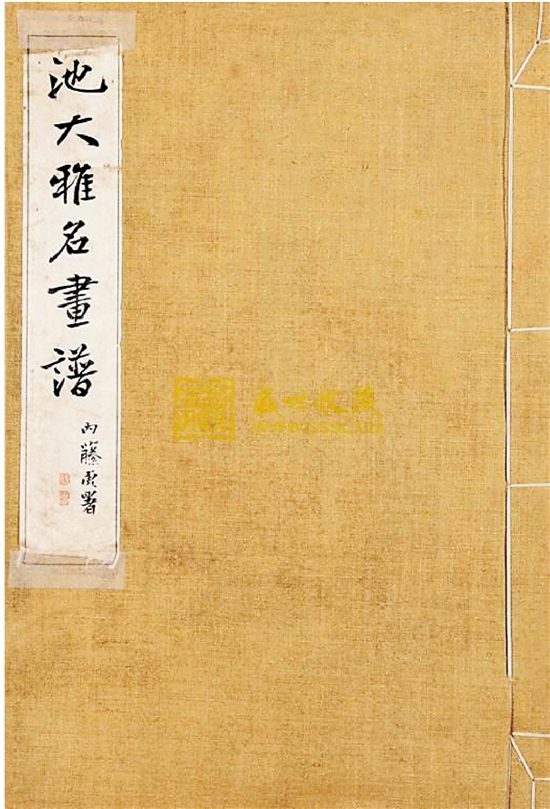 池大雅名畫譜
内藤虎署